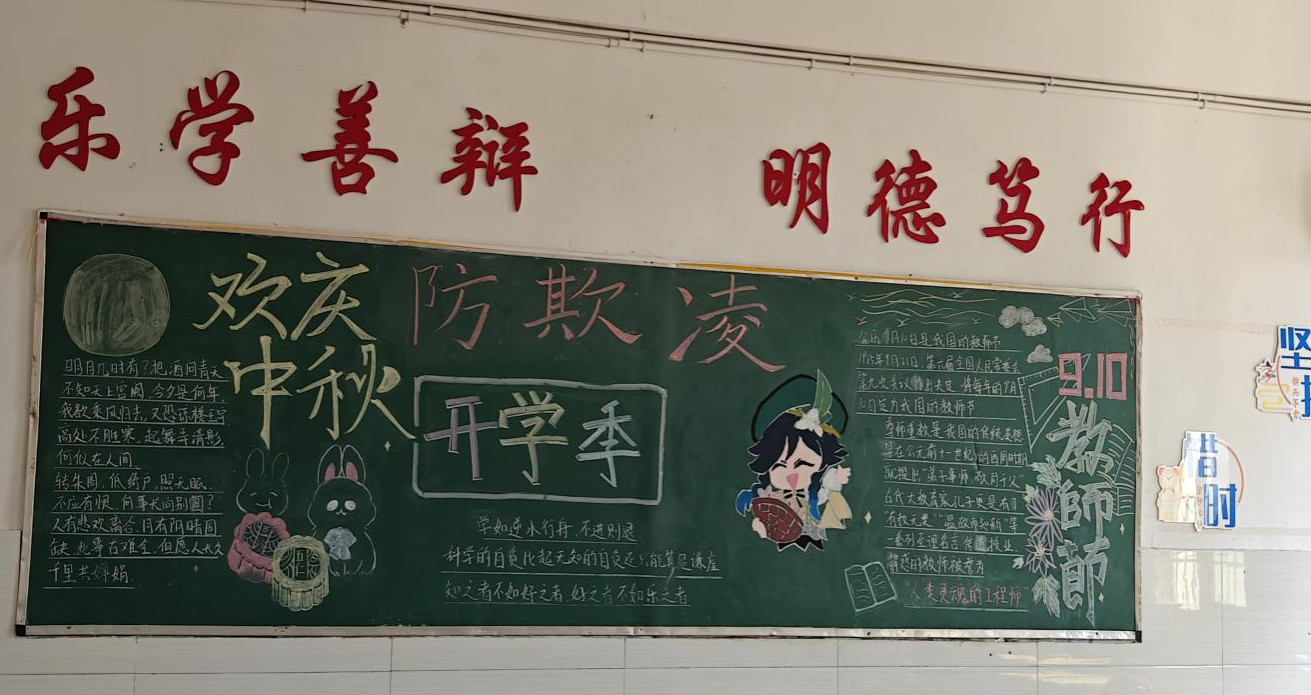 乐学善辩 明德笃行
欢庆
中秋
防欺凌
开学季
明月几时有？把酒问青天
不知天上宫阙，今夕是何年
我欲乘风归去，又恐琼楼玉宇
高处不胜寒，起舞弄清影，
何似在人间、
转朱阁，低绮户，照无眠、
不应有恨，何事长向别圆？
人有悲欢离合，月有阴晴圆
缺，此事古难全，但愿人长久
千里共婵娟.
学如逆水行舟，不进则退
科学的自负比起无知的自负还只能算是谦虚
知之者不如好之者，好之者不如乐之者
公历9月10日是我国的教师节
1985年1月21日，第六届全国人民常委会
第九次会议作出决定，将每年的9月
10日定为我国的教师节
尊师重教是我国的传统美德
早在公元前十一世纪的西周时期
就提出"弟子事师，敬同于父"
古代大教育家孔子更是有了
"有教无类""温故而知新"等
一系列至理名言 传道授业
解惑的教师被誉为
"人类灵魂的工程师"
9.10
教師節
坚
惜
时